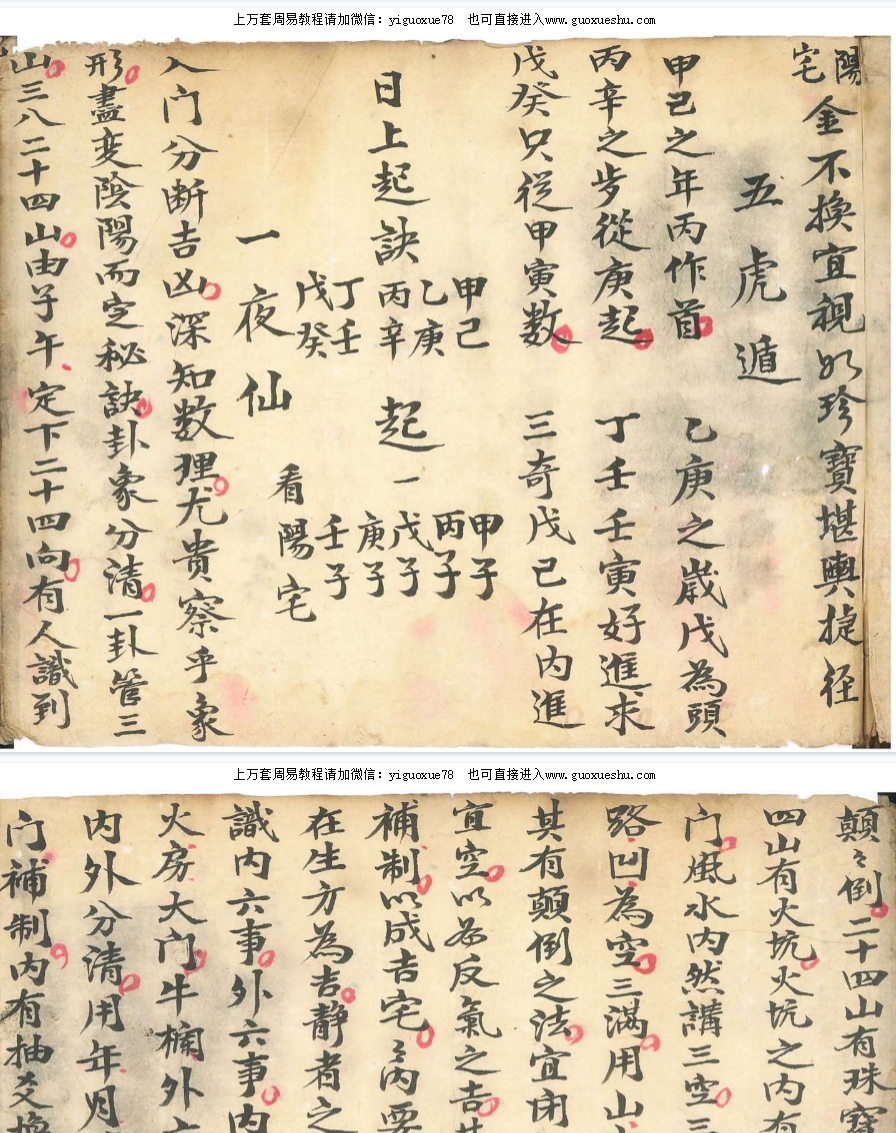 上万套周易教程请加微信：yiguoxue78 也可直接进入www.guoxueshu.com
陽宅金不換宜視如珍寶堪輿捷径
五虎遁
甲己之年丙作首 乙庚之歲戊為頭
丙辛之步從庚起 丁壬壬寅好進求
戊癸只從甲寅数 三奇戊己在内進
日上起訣
甲己
乙庚
丙辛
丁壬
戊癸
起一
甲子
丙子
戊子
庚子
壬子
一夜仙
看陽宅
入门分断吉凶深知数理尤貴察乎象
形盡变陰陽而定秘訣卦象分清一卦管三
山三八二十四山由子午定下二十四向有人識到
上万套周易教程请加微信：yiguoxue78 也可直接进入www.guoxueshu.com
顛々倒二十四山有珠寶
四山有火坑火坑之内有
门風水内然講三空三
路凹為空三满用山
其有顛倒之法宜闭
宜空以為反氣之吉其
補制以成吉宅々内要
在生方為吉静者之
識内六事外六事内
火房大门牛欄外六
内外分清用年月
门補制内有抽爻換